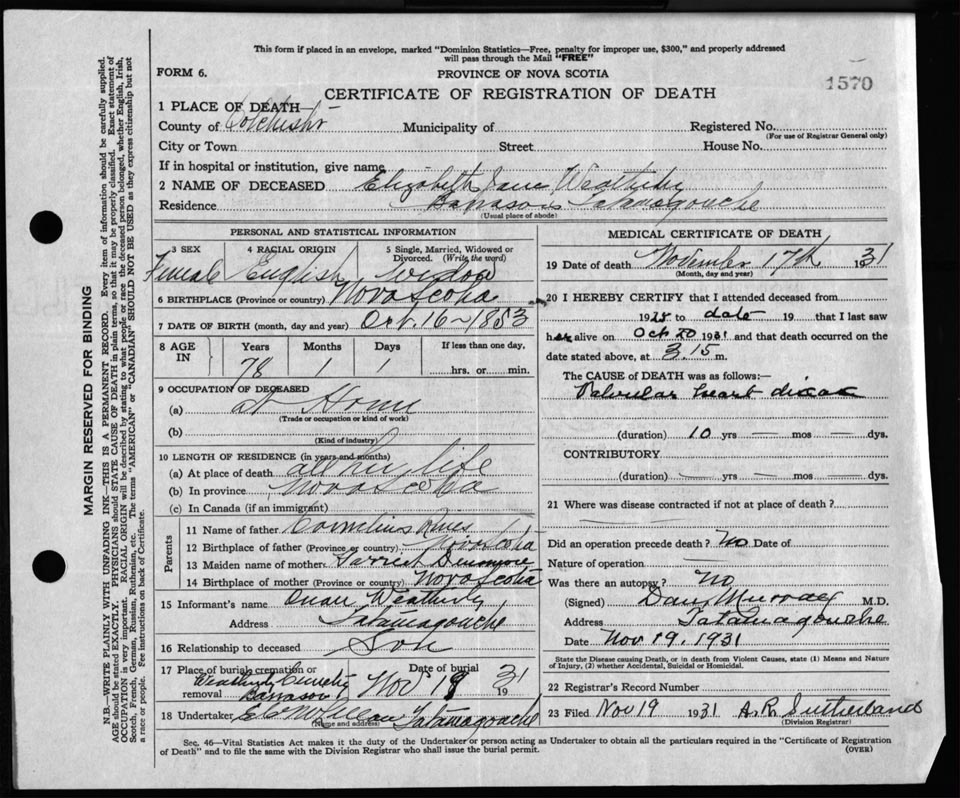 This form if placed in an envelope, marked "Dominion Statistics—Free, penalty for improper use, $300," and properly addressed
will pass through the Mail "FREE"
FORM 6.
PROVINCE OF NOVA SCOTIA
1570
CERTIFICATE OF REGISTRATION OF DEATH
1 PLACE OF DEATH—
County of Municipality of Registered No.
(For use of Registrar General only)
City or Town Street House No.
If in hospital or institution, give name
2 NAME OF DECEASED Elizabeth Jane
Residence Tatamagouche
(Usual place of abode)
PERSONAL AND STATISTICAL INFORMATION
3 SEX 4 RACIAL ORIGIN 5 Single, Married, Widowed or
Divorced. (Write the word)
Female English widow
6 BIRTHPLACE (Province or country) Nova Scotia
7 DATE OF BIRTH (month, day and year) Oct. 16 - 1853
8 AGE IN Years Months Days If less than one day,
78 1 1 hrs. or min.
9 OCCUPATION OF DECEASED
(a) at Home
(Trade or occupation or kind of work)
(b)
(Kind of industry)
10 LENGTH OF RESIDENCE (in years and months)
(a) At place of death all her life
(b) In province Nova Scotia
(c) In Canada (if an immigrant)
Parents
11 Name of father Cornelius
12 Birthplace of father (Province or country) Nova Scotia
13 Maiden name of mother
14 Birthplace of mother (Province or country) Nova Scotia
15 Informant's name
Address Tatamagouche
16 Relationship to deceased Son
17 Place of burial cremation or removal Date of burial
Nov 19 1931
18 Undertaker Tatamagouche
(Name and address)
MEDICAL CERTIFICATE OF DEATH
19 Date of death November 17th 1931
(Month, day and year)
20 I HEREBY CERTIFY that I attended deceased from
1928 to date 19 that I last saw
her alive on Oct 20 1931 and that death occurred on the
date stated above, at 3.15 m.
The CAUSE OF DEATH was as follows:—
Valvular heart disease
(duration) 10 yrs — mos — dys.
CONTRIBUTORY
(duration) — yrs — mos — dys.
21 Where was disease contracted if not at place of death?
Did an operation precede death? No Date of
Nature of operation —
Was there an autopsy? No
(Signed) Dan Murray M.D.
Address Tatamagouche
Date Nov 19. 1931
State the Disease causing Death, or in death from Violent Causes, state (1) Means and Nature
of Injury, (2) whether Accidental, Suicidal or Homicidal.
22 Registrar's Record Number
23 Filed Nov 19 1931 A.R. Sutherland
(Division Registrar)
Sec. 46—Vital Statistics Act makes it the duty of the Undertaker or person acting as Undertaker to obtain all the particulars required in the "Certificate of Registration
of Death" and to file the same with the Division Registrar who shall issue the burial permit.
(OVER)
MARGIN RESERVED FOR BINDING
N.B.—WRITE PLAINLY WITH UNFADING INK—THIS IS A PERMANENT RECORD. Every item of information should be carefully supplied.
AGE should be stated EXACTLY. PHYSICIANS should STATE CAUSE OF DEATH in plain terms, so that it may be properly classified. Exact statement of
OCCUPATION is very important. RACIAL ORIGIN will be described by stating to what people or race the deceased person belonged, whether English, Irish,
Scotch, French, German, Russian, Ruthenian, etc. The terms "AMERICAN" or "CANADIAN" SHOULD NOT BE USED as they express citizenship but not
a race or people. Fee instructions on back of Certificate.